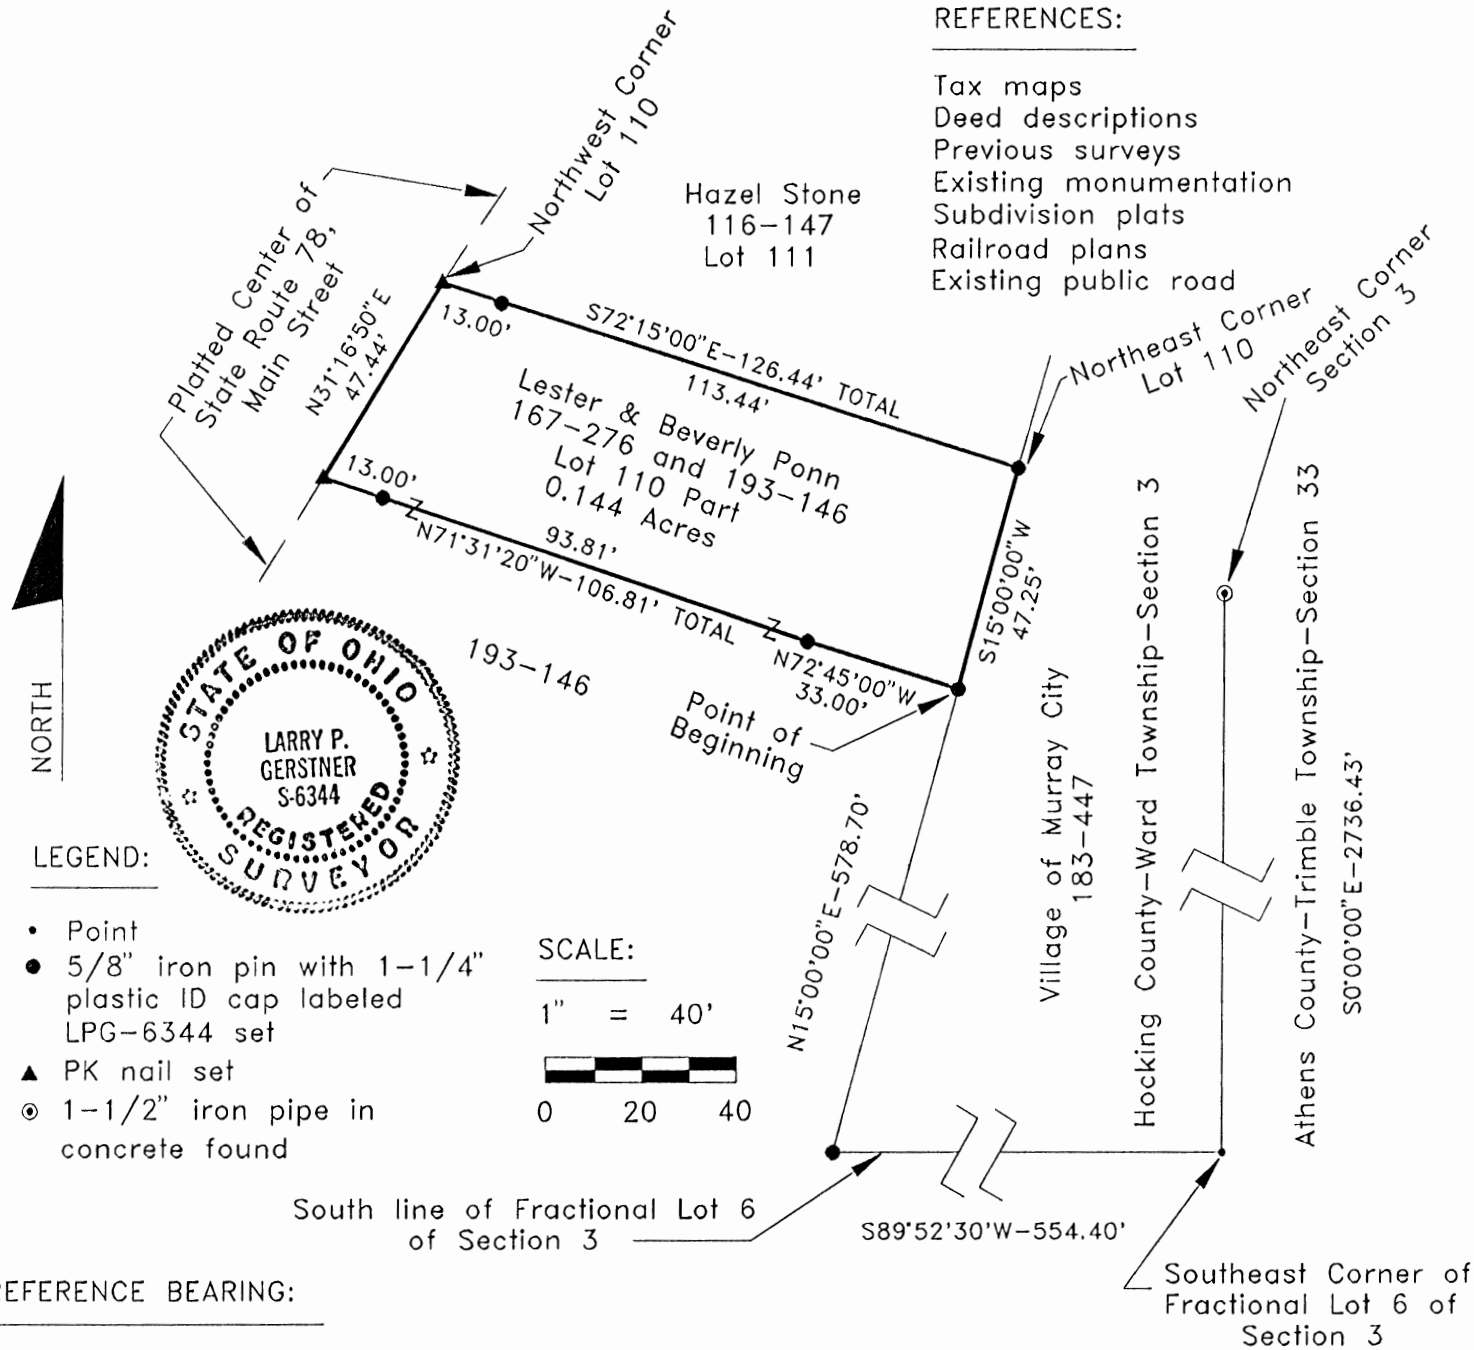 REFERENCES:
Tax maps
Deed descriptions
Previous surveys
Existing monumentation
Subdivision plats
Railroad plans
Existing public road
Northwest Corner
Lot 110
Hazel Stone
116-147
Lot 111
Platted Center of
State Route 78,
Main Street
N31°16'50"E
47.44'
13.00'
S72°15'00"E-126.44' TOTAL
113.44'
Northeast Corner
Lot 110
Northeast Corner
Section 3
Lester & Beverly Ponn
167-276 and 193-146
Lot 110 Part
0.144 Acres
13.00'
93.81'
N71°31'20"W-106.81' TOTAL
193-146
N72°45'00"W
33.00'
S15°00'00"W
47.25'
Point of
Beginning
NORTH
STATE OF OHIO
LARRY P.
GERSTNER
S-6344
REGISTERED
SURVEYOR
N15°00'00"E-578.70'
Village of Murray City
183-447
Hocking County-Ward Township-Section 3
Athens County-Trimble Township-Section 33
S0°00'00"E-2736.43'
LEGEND:
Point
5/8" iron pin with 1-1/4"
plastic ID cap labeled
LPG-6344 set
PK nail set
1-1/2" iron pipe in
concrete found
SCALE:
1" = 40'
0 20 40
South line of Fractional Lot 6
of Section 3
S89°52'30'W-554.40'
Southeast Corner of
Fractional Lot 6 of
Section 3
REFERENCE BEARING: